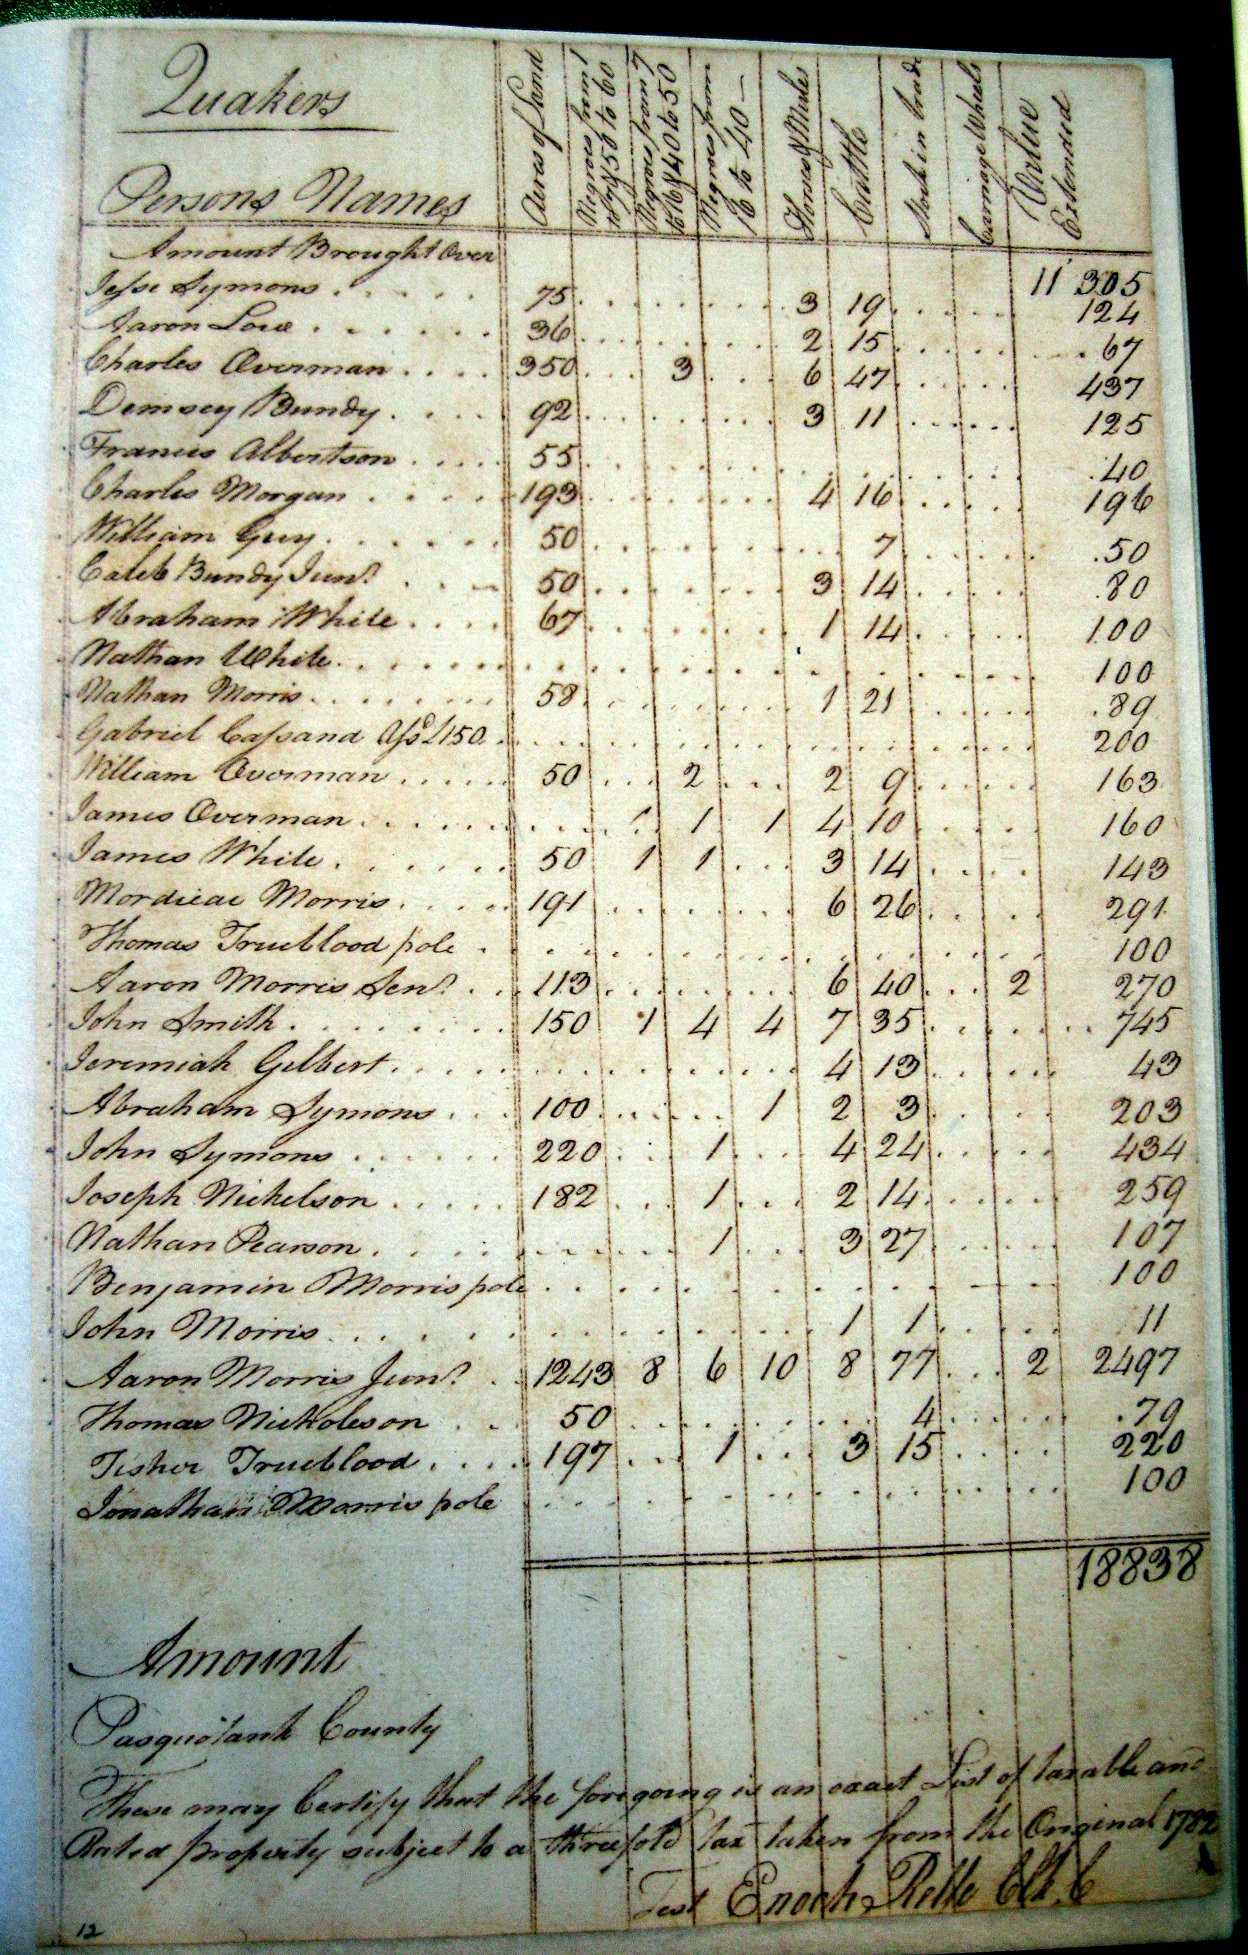 Quakers
Persons Names
Acres of Land
Negroes from 1 to 7 & 50 to 60
Negroes from 7 to 16 & 40 to 50
Negroes from 16 to 40 —
Horses & Mules
Cattle
Stock in trade
Carriage Wheels
Value Extended
Amount Brought Over 11305
Jesse Symons 75 3 19 124
Aaron Low 36 2 15 67
Charles Overman 350 3 6 47 437
Demsey Bundy 92 3 11 125
Francis Albertson 55 40
Charles Morgan 193 4 16 196
William Guy 50 7 50
Caleb Bundy Junr 50 3 14 80
Abraham White 67 1 14 100
Nathan White 100
Nathan Morris 58 1 21 89
Gabriel Casand £150 200
William Overman 50 2 2 9 163
James Overman 1 1 1 4 10 160
James White 50 1 1 3 14 143
Mordicai Morris 191 6 26 291
Thomas Trueblood pole 100
Aaron Morris Senr 113 6 40 2 270
John Smith 150 1 4 4 7 35 745
Jeremiah Gilbert 4 13 43
Abraham Symons 100 1 2 3 203
John Symons 220 1 4 24 434
Joseph Nickelson 182 1 2 14 259
Nathan Pearson 1 3 27 107
Benjamin Morris pole 100
John Morris 1 1 11
Aaron Morris Junr 1243 8 6 10 8 77 2 2497
Thomas Nicholson 50 4 79
Fisher Trueblood 197 1 3 15 220
Jonathan Morris pole 100
18838
Amount
Pasquotank County
These may Certify that the foregoing is an exact List of taxable and
Rated property subject to a threefold tax taken from the Original 1782
Test Enoch Relfe Clk C
12